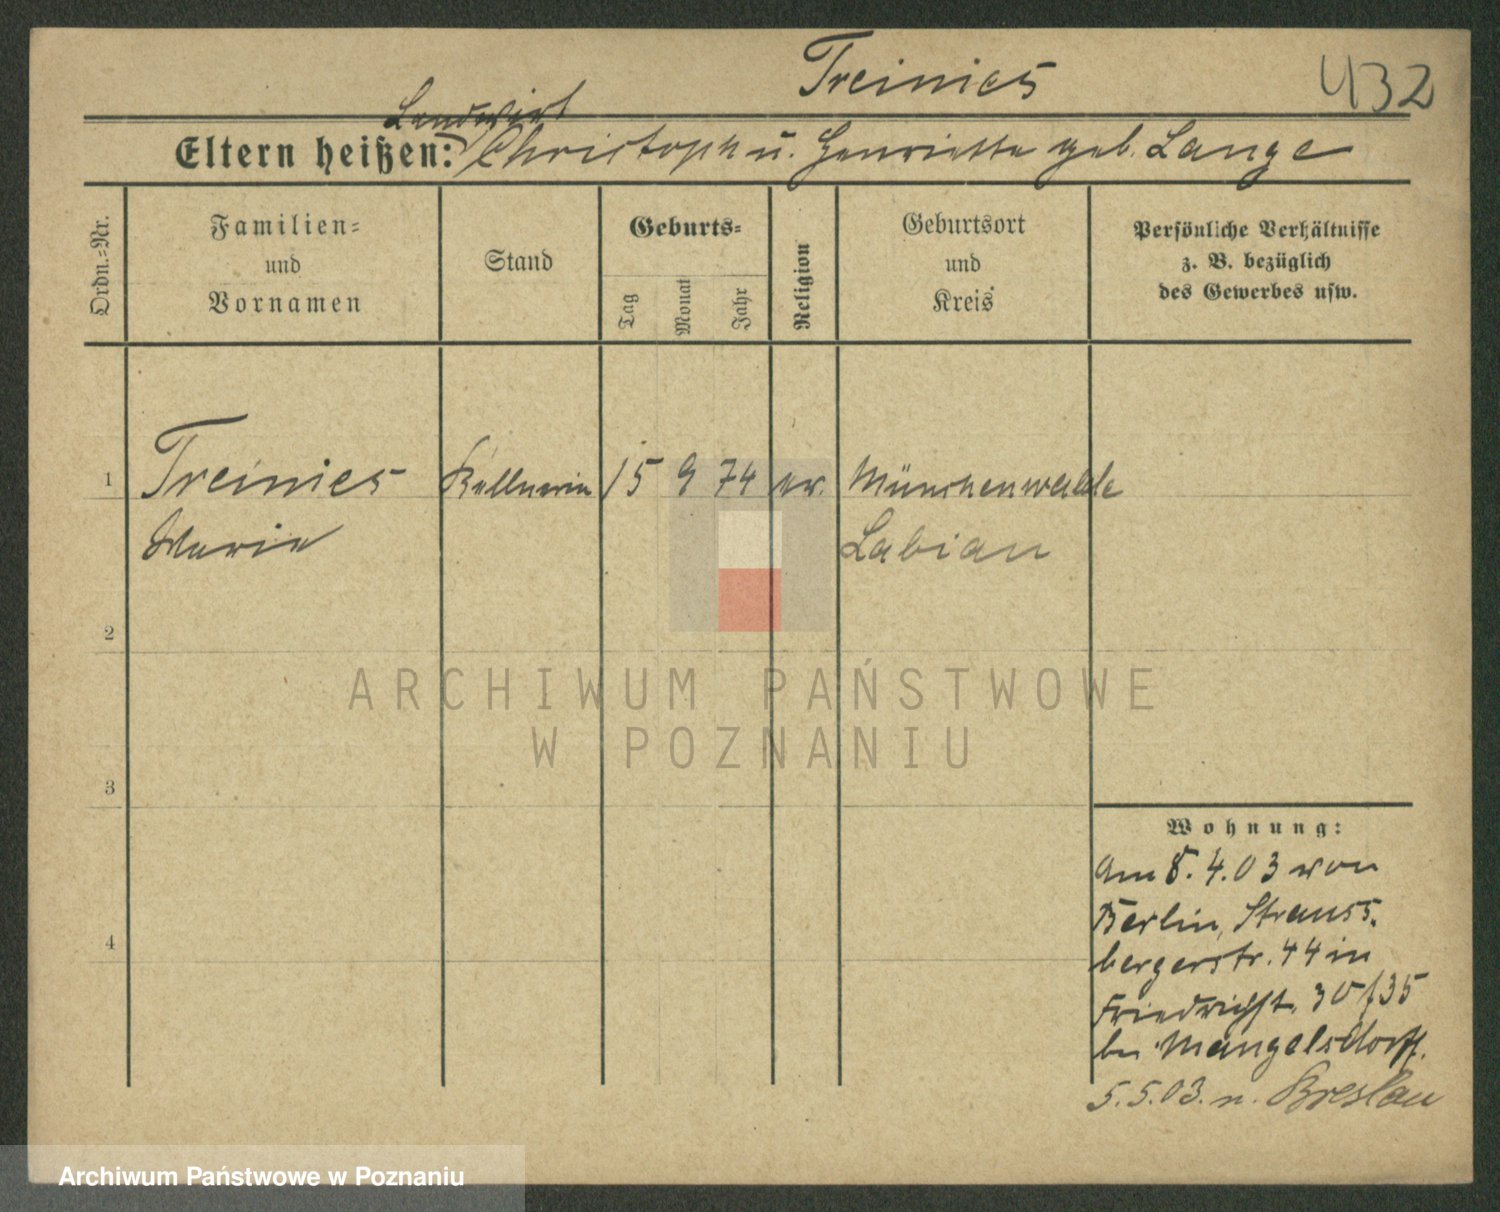 Treinies
432
Landwirt
Eltern heißen: Christoph u. Henriette geb. Lange
Ordn.-Nr.
Familien-
und
Vornamen
Stand
Geburts-
Tag
Monat
Jahr
Religion
Geburtsort
und
Kreis
Persönliche Verhältnisse
z. B. bezüglich
des Gewerbes usw.
1 Treinies Kellnerin 15 9 74 ev. Münchenwalde
Marie Labiau
2
ARCHIWUM PAŃSTWOWE
W POZNANIU
3
Wohnung:
Am 8.4.03 von
Berlin, Strauss-
4
bergerstr. 44 in
Friedrichst. 30/35
bei Mangelsdorff.
5.5.03. n. Breslau
Archiwum Państwowe w Poznaniu